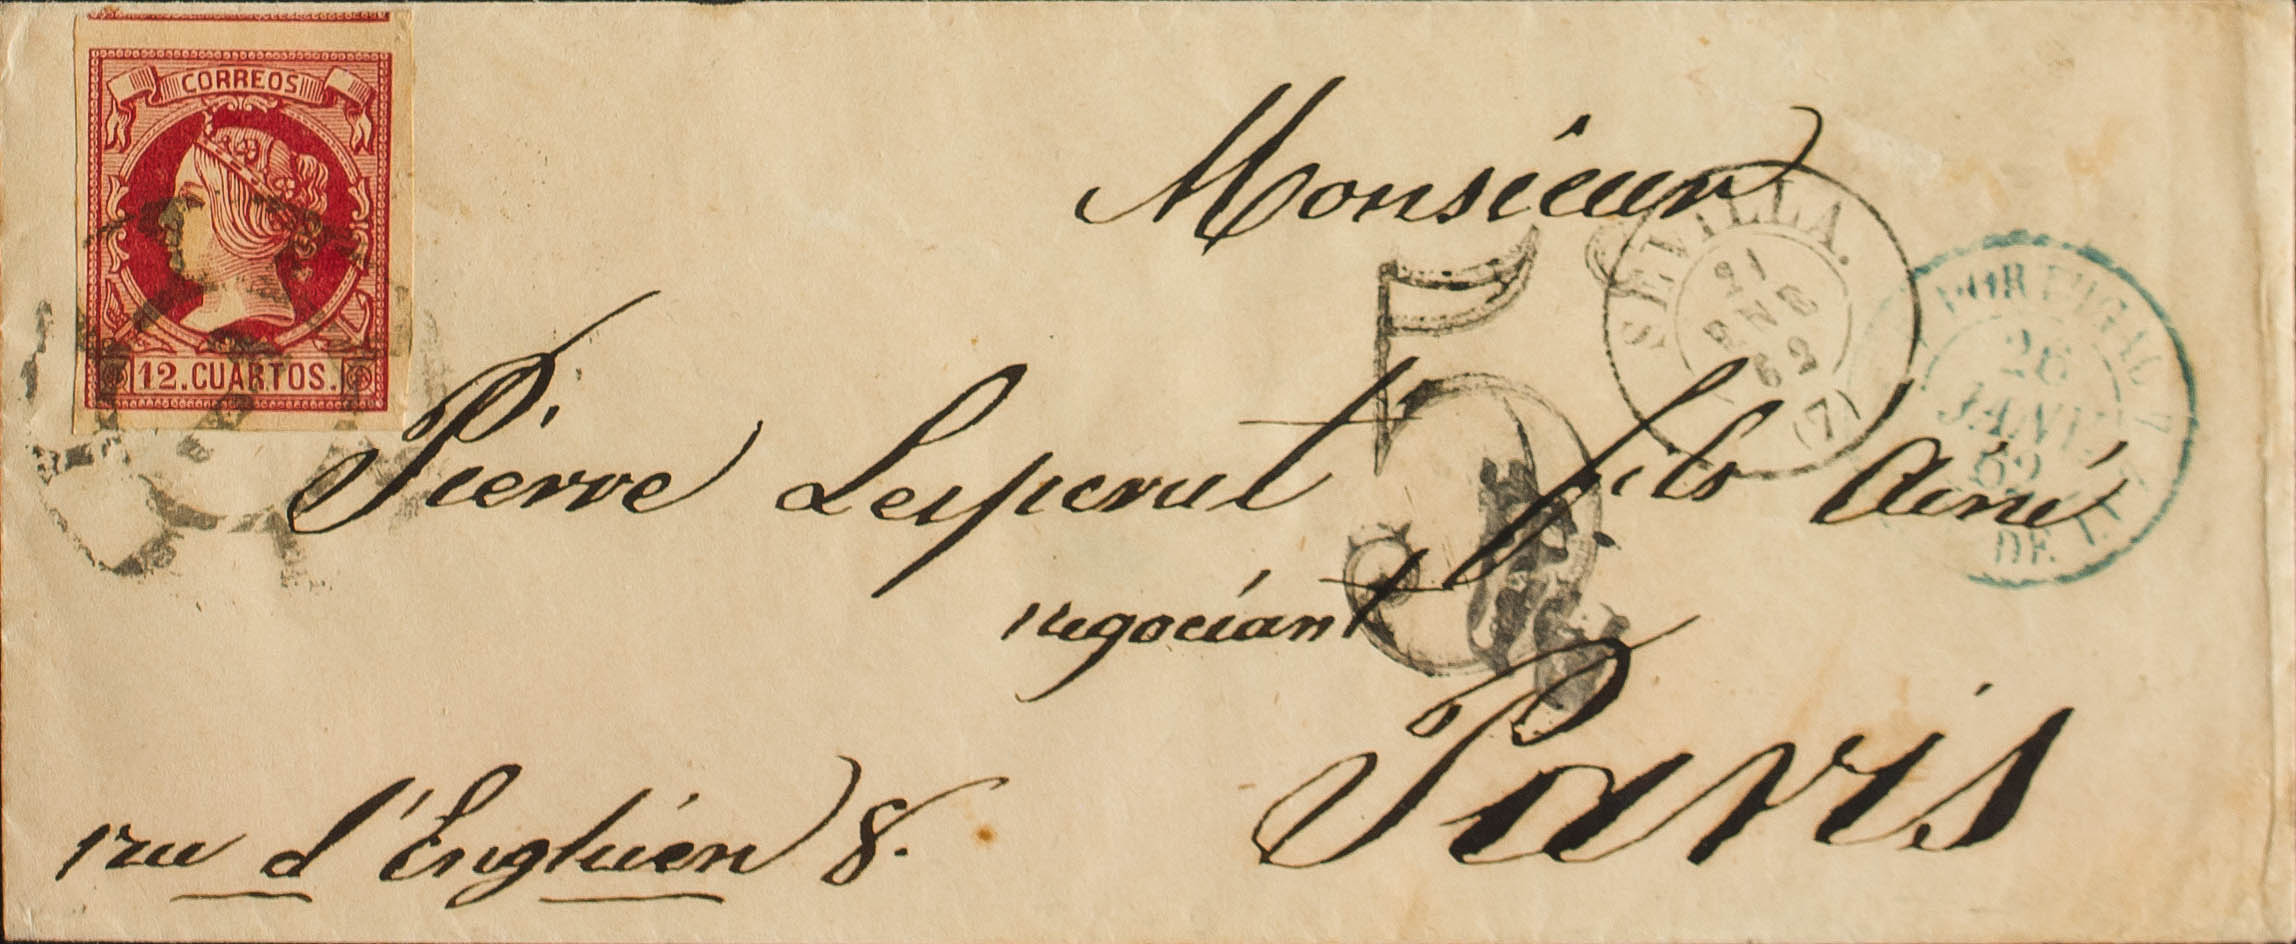 CORREOS
12.CUARTOS.
Monsieur
SEVILLA.
21
ENE
62
(7)
26
JANV.
62
5
Pierre Lesperut fils ainé
negociant
Paris
rue d'Enghien 8.